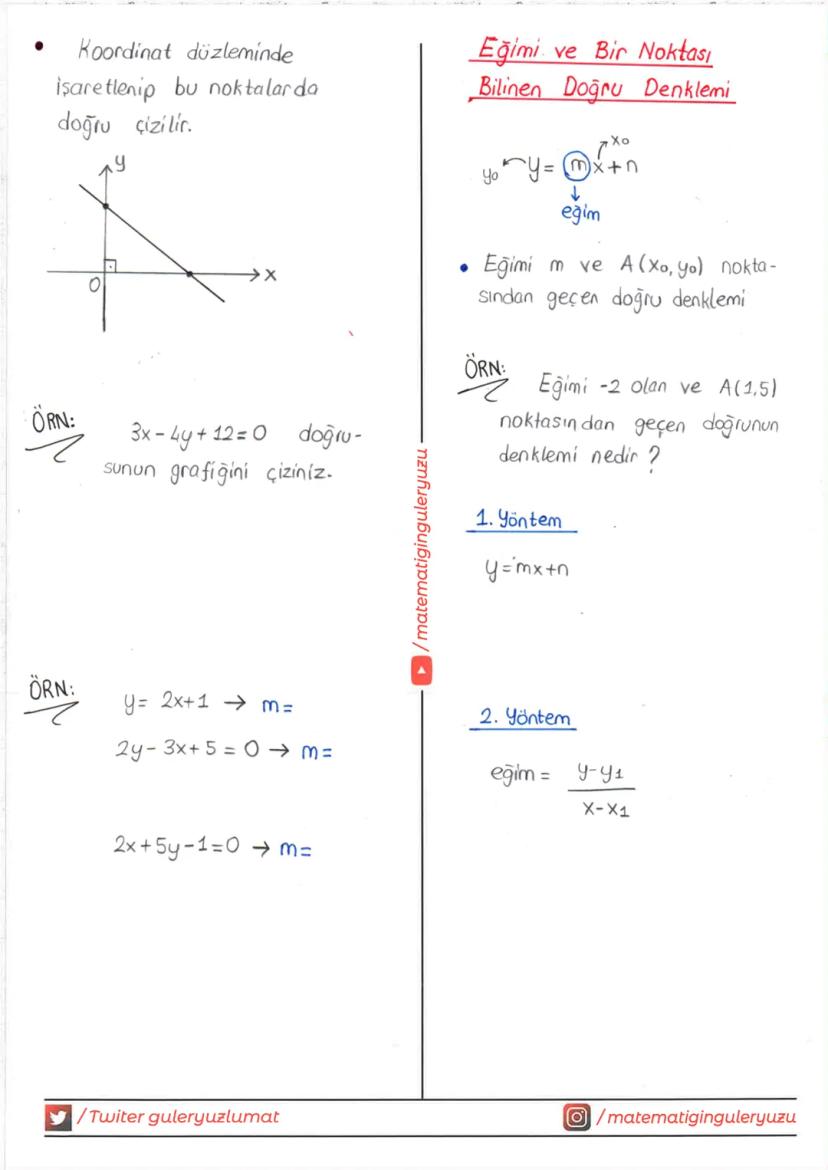 • Koordinat düzleminde
işaretlenip bu noktalarda
doğru çizilir.
y
O
x
ÖRN:
3x - 4y + 12 = 0 doğru-
sunun grafiğini çiziniz.
ÖRN:
y = 2x+1 → m =
2y - 3x + 5 = 0 → m =
2x + 5y - 1 = 0 → m =
/matematiginguleryuzu
Eğimi ve Bir Noktası
Bilinen Doğru Denklemi
x0
y0 y = mx+n
eğim
• Eğimi m ve A(x0, y0) nokta-
sından geçen doğru denklemi
ÖRN:
Eğimi -2 olan ve A(1,5)
noktasından geçen doğrunun
denklemi nedir ?
1. Yöntem
y = mx+n
2. Yöntem
eğim = y-y1
x-x1
/Twiter guleryuzlumat
/matematiginguleryuzu